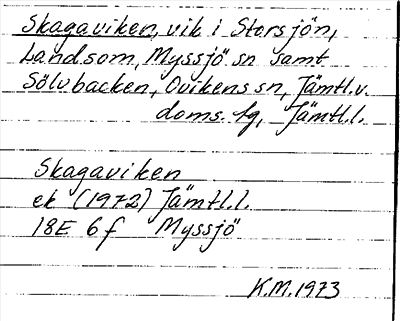 Skagaviken, vik i Storsjön,
Landsom, Myssjö sn samt
Sölvbacken, Ovikens sn, Jämtl.v.
doms. tg, Jämtl.l.
Skagaviken
ek (1972) Jämtl.l.
18E 6f Myssjö
K.M.1973